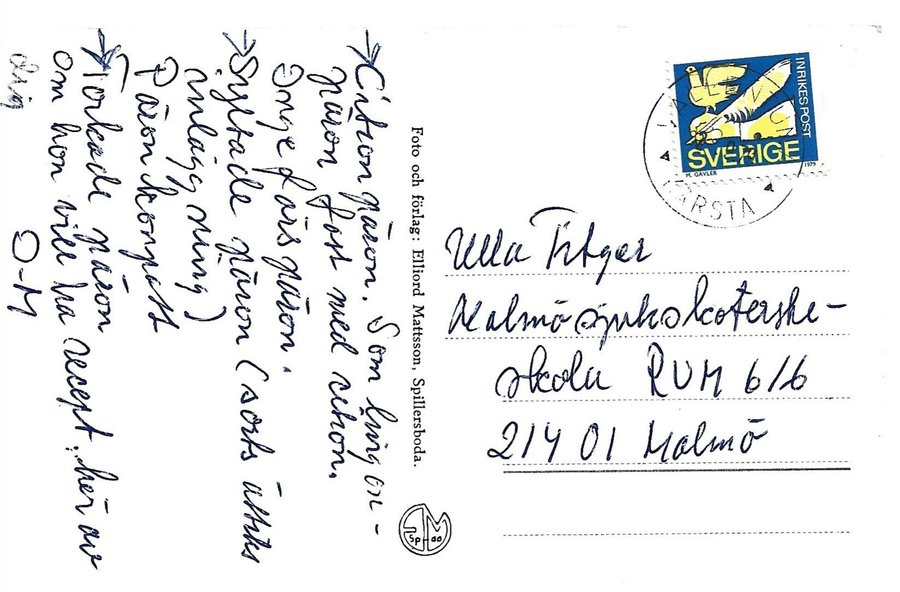 → Citron päron. Som lingon-
päron fast med citron.
Ingefärs päron.
→ Syltade päron (sorts ättiks
inläggning)
Päronkompott
→ Torkade päron
om hon vill ha recept, hör av
dig
O-M
Foto och förlag: Elliord Mattsson, Spillersboda.
INRIKES POST
SVERIGE
M. GÄVLER
1979
MÄRSTA
Ulla Titger
Malmö sjuksköterske-
skola RUM 616
214 01 Malmö